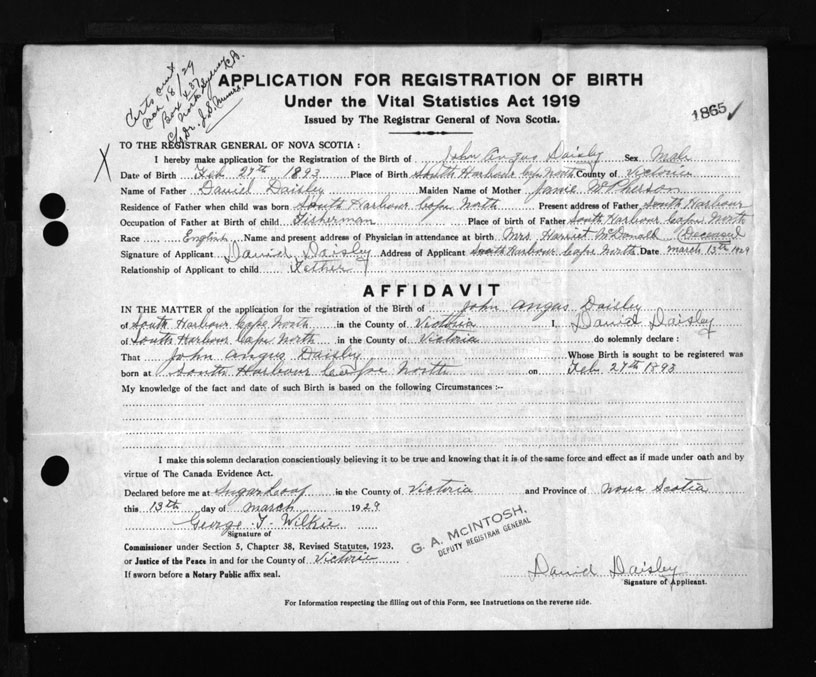 Certs out
Mar 18/29
Box 487
North Sydney
C.B.
c/o Dr. J.S. Munro.
APPLICATION FOR REGISTRATION OF BIRTH
Under the Vital Statistics Act 1919
Issued by The Registrar General of Nova Scotia.
1865 ✓
X
TO THE REGISTRAR GENERAL OF NOVA SCOTIA :
I hereby make application for the Registration of the Birth of John Angus Daisley Sex Male
Date of Birth Feb 27th 1893 Place of Birth South Harbour Cape North County of Victoria
Name of Father David Daisley Maiden Name of Mother Janie McPherson
Residence of Father when child was born South Harbour Cape North Present address of Father, South Harbour
Occupation of Father at Birth of child Fisherman Place of birth of Father South Harbour Cape North
Race English Name and present address of Physician in attendance at birth Mrs. Harriet McDonald (Deceased
Signature of Applicant David Daisley Address of Applicant South Harbour Cape North Date March 13th 1929
Relationship of Applicant to child Father
AFFIDAVIT
IN THE MATTER of the application for the registration of the Birth of John Angus Daisley
of South Harbour Cape North in the County of Victoria I, David Daisley
of South Harbour Cape North in the County of Victoria do solemnly declare :
That John Angus Daisley Whose Birth is sought to be registered was
born at South Harbour Cape North on Feb 27th 1893
My knowledge of the fact and date of such Birth is based on the following Circumstances :--
I make this solemn declaration conscientiously believing it to be true and knowing that it is of the same force and effect as if made under oath and by
virtue of The Canada Evidence Act.
Declared before me at Sugar Loaf in the County of Victoria and Province of Nova Scotia
this 13th day of March 1929
George T. Wilkie
Signature of
G. A. McINTOSH,
DEPUTY REGISTRAR GENERAL
Commissioner under Section 5, Chapter 38, Revised Statutes, 1923,
or Justice of the Peace in and for the County of Victoria
If sworn before a Notary Public affix seal.
David Daisley
Signature of Applicant.
For Information respecting the filling out of this Form, see Instructions on the reverse side.